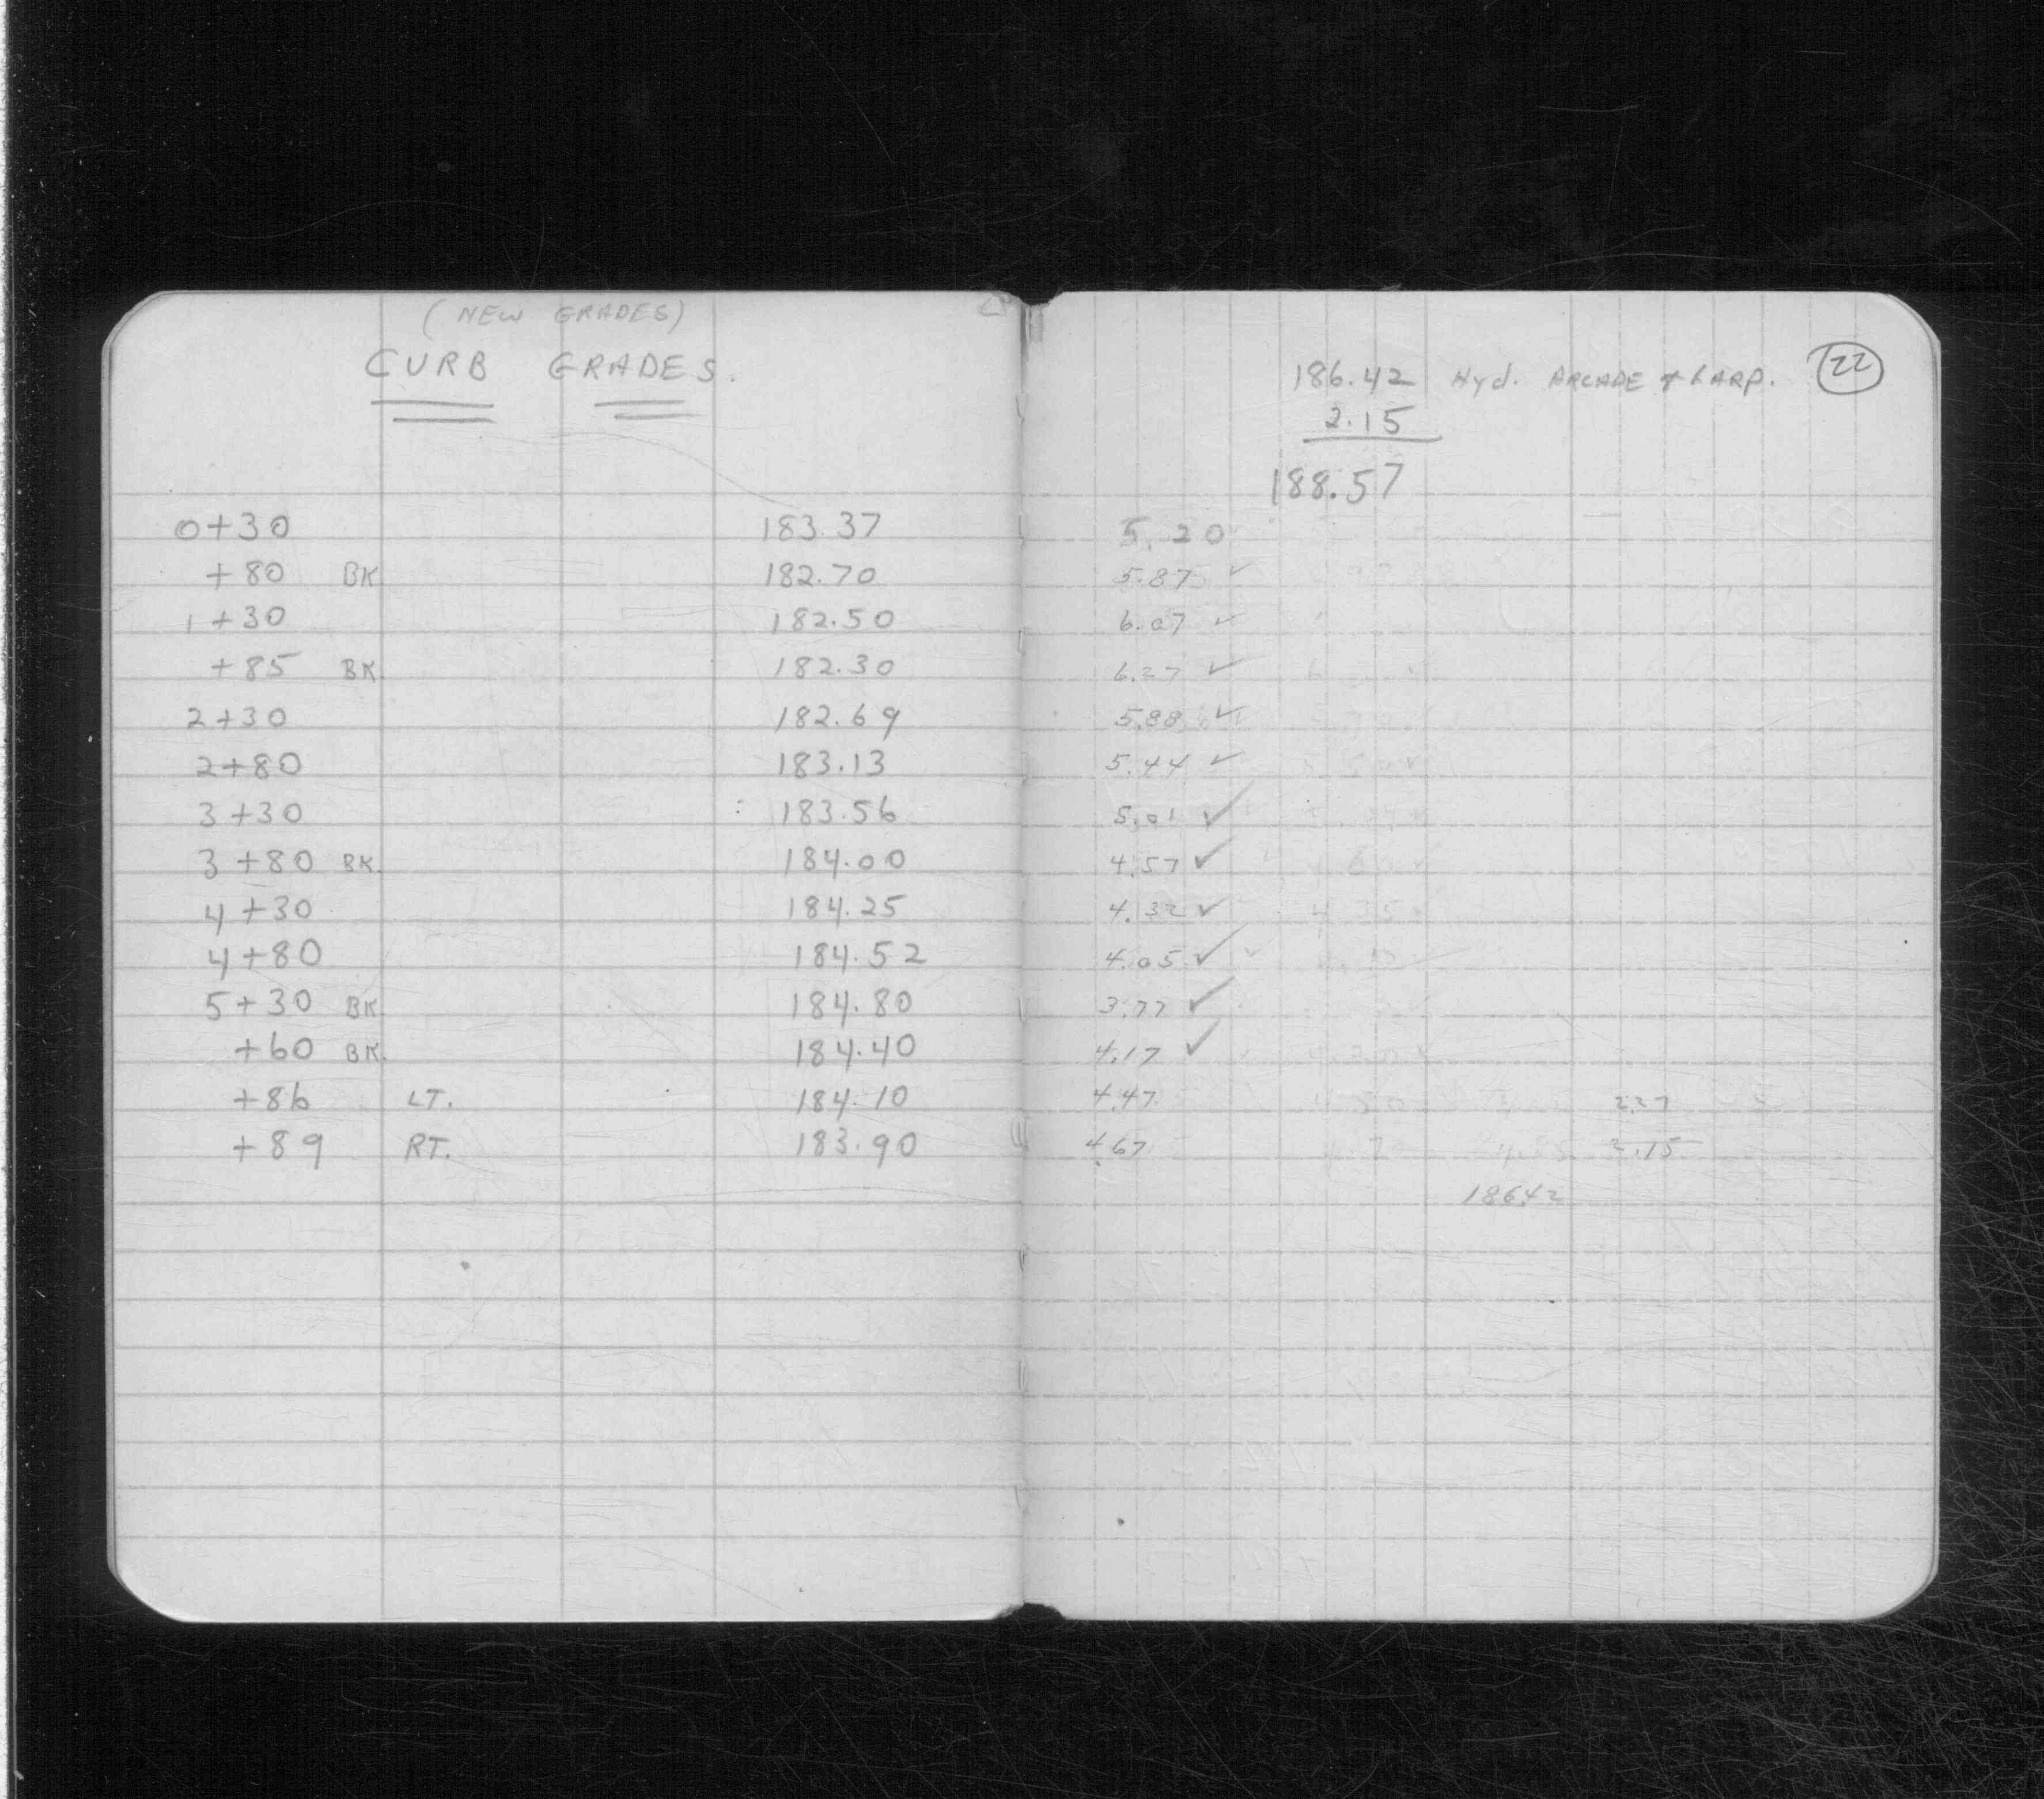 (NEW GRADES)
CURB GRADES.
0+30 183.37
+80 BK 182.70
1+30 182.50
+85 BK. 182.30
2+30 182.69
2+80 183.13
3+30 183.56
3+80 BK. 184.00
4+30 184.25
4+80 184.52
5+30 BK. 184.80
+60 BK. 184.40
+86 LT. 184.10
+89 RT. 183.90
22
186.42 Hyd. ARCADE + LARP.
2.15
188.57
5.20
5.87 ✓
6.07 ✓
6.27 ✓
5.88 ✓
5.44 ✓
5.01 ✓
4.57 ✓
4.32 ✓ 4.35 ✓
4.05 ✓
3.77 ✓
4.17 ✓
4.47 2.27
4.67 2.15
186.42